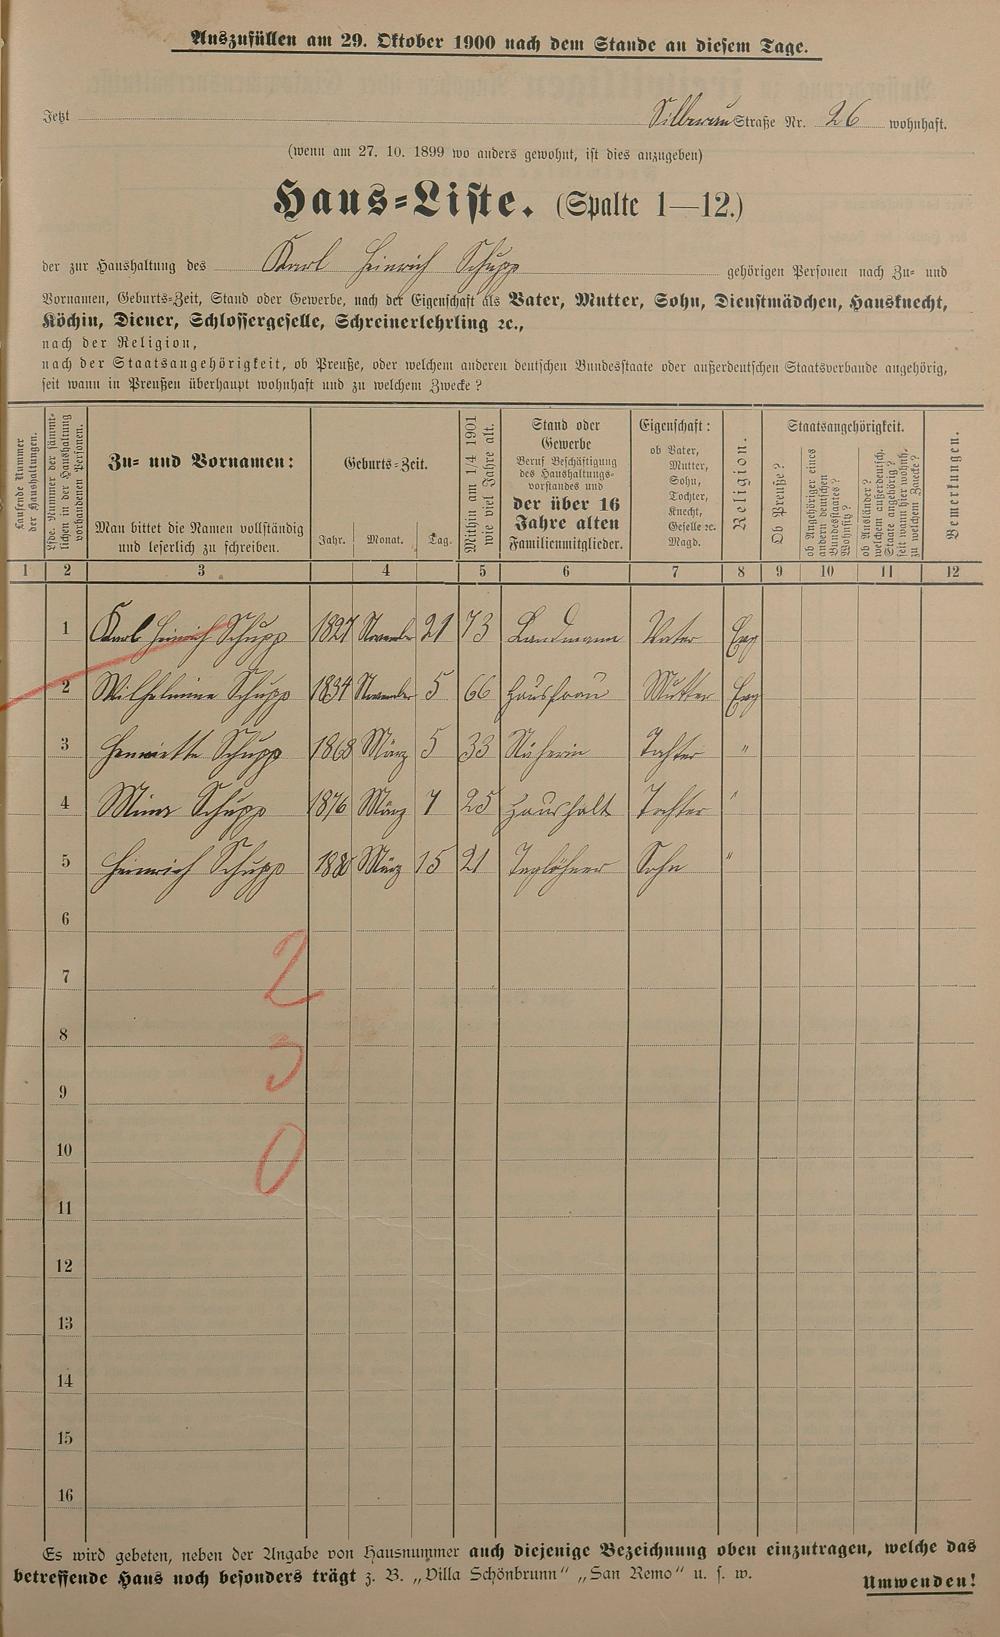 Auszufüllen am 29. Oktober 1900 nach dem Stande an diesem Tage.
Jetzt Silberau Straße Nr. 26 wohnhaft.
(wenn am 27. 10. 1899 wo anders gewohnt, ist dies anzugeben)
Haus=Liste. (Spalte 1—12.)
der zur Haushaltung des Karl Heinrich Schupp gehörigen Personen nach Zu= und
Vornamen, Geburts=Zeit, Stand oder Gewerbe, nach der Eigenschaft als Vater, Mutter, Sohn, Dienstmädchen, Hausknecht,
Köchin, Diener, Schlossergeselle, Schreinerlehrling ꝛc.,
nach der Religion,
nach der Staatsangehörigkeit, ob Preuße, oder welchem anderen deutschen Bundesstaate oder außerdeutschen Staatsverbande angehörig,
seit wann in Preußen überhaupt wohnhaft und zu welchem Zwecke?
Laufende Nummer
der Haushaltungen.
Lfde. Nummer der sämmt=
lichen in der Haushaltung
vorhandenen Personen.
Zu= und Vornamen:
Man bittet die Namen vollständig
und leserlich zu schreiben.
Geburts=Zeit.
Jahr. Monat. Tag.
Mithin am 1/4 1901
wie viel Jahre alt.
Stand oder
Gewerbe
Beruf Beschäftigung
des Haushaltungs=
vorstandes und
der über 16
Jahre alten
Familienmitglieder.
Eigenschaft:
ob Vater,
Mutter,
Sohn,
Tochter,
Knecht,
Geselle ꝛc.
Magd.
Religion.
Staatsangehörigkeit.
Ob Preuße?
ob Angehöriger eines
andern deutschen
Bundesstaates?
Wohnsitz?
ob Ausländer?
welchem außerdeutsch.
Staate angehörig?
seit wann hier wohnh.
zu welchem Zwecke?
Bemerkungen.
1 2 3 4 5 6 7 8 9 10 11 12
1 Karl Heinrich Schupp 1827 November 21 73 Landmann Vater Evg
2 Wilhelmine Schupp 1834 November 5 66 Hausfrau Mutter Evg
3 Henriette Schupp 1868 März 5 33 Näherin Tochter "
4 Mina Schupp 1876 März 7 25 Haushalt Tochter "
5 Heinrich Schupp 1880 März 15 21 Taglöhner Sohn "
6
2
7
8
3
9
10
0
11
12
13
14
15
16
Es wird gebeten, neben der Angabe von Hausnummer auch diejenige Bezeichnung oben einzutragen, welche das
betreffende Haus noch besonders trägt z. B. „Villa Schönbrunn“ „San Remo“ u. s. w.
Umwenden!